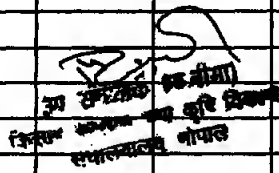 उप संचालक (फ.बीमा)
किसान कल्याण तथा कृषि विकास
संचालनालय भोपाल